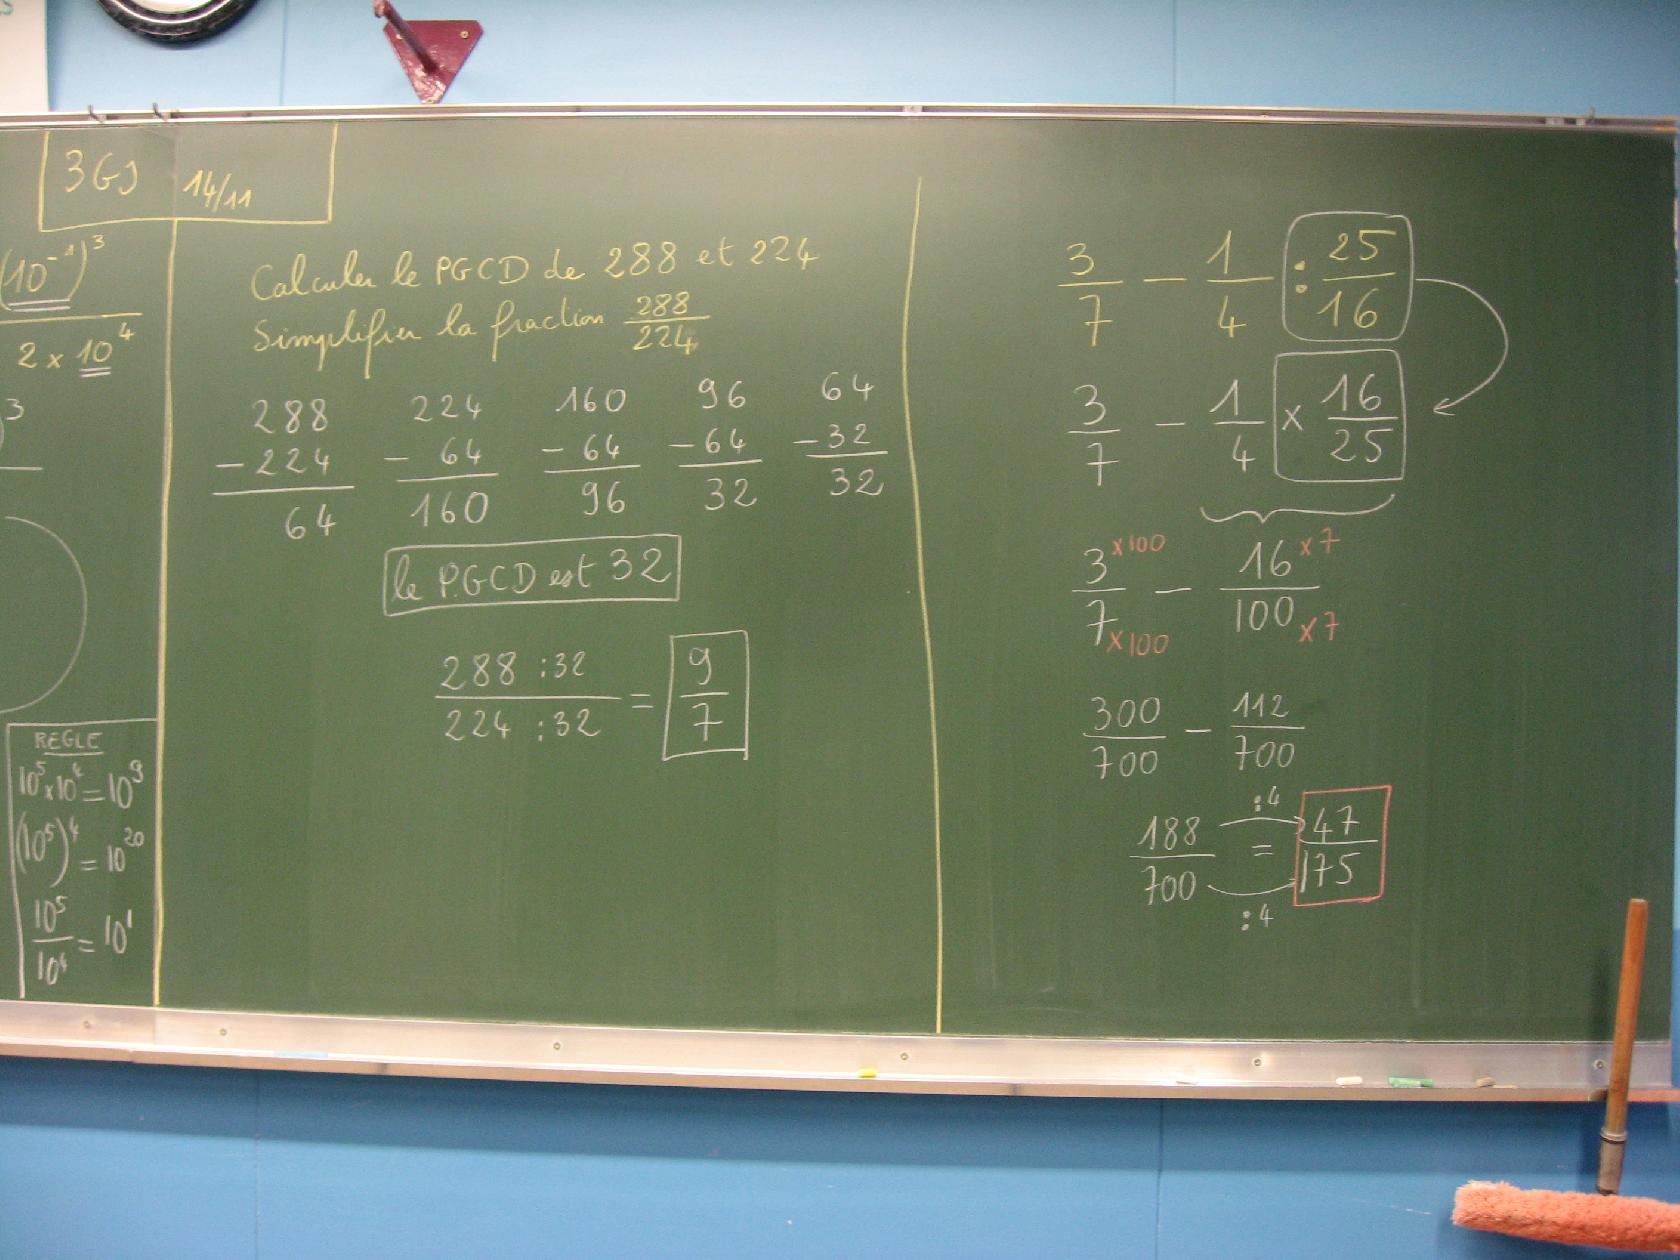 3GJ 14/11
(10⁻¹)³
2 x 10⁴
3
REGLE
10⁵ x 10⁴ = 10⁹
(10⁵)⁴ = 10²⁰
10⁵/10⁴ = 10¹
Calculer le PGCD de 288 et 224
Simplifier la fraction 288/224
288 224 160 96 64
- 224 - 64 - 64 - 64 - 32
64 160 96 32 32
le PGCD est 32
288 : 32 / 224 : 32 = 9/7
3/7 - 1/4 : 25/16
3/7 - 1/4 x 16/25
3 x100 / 7 x100 - 16 x7 / 100 x7
300/700 - 112/700
:4
188/700 = 47/175
:4